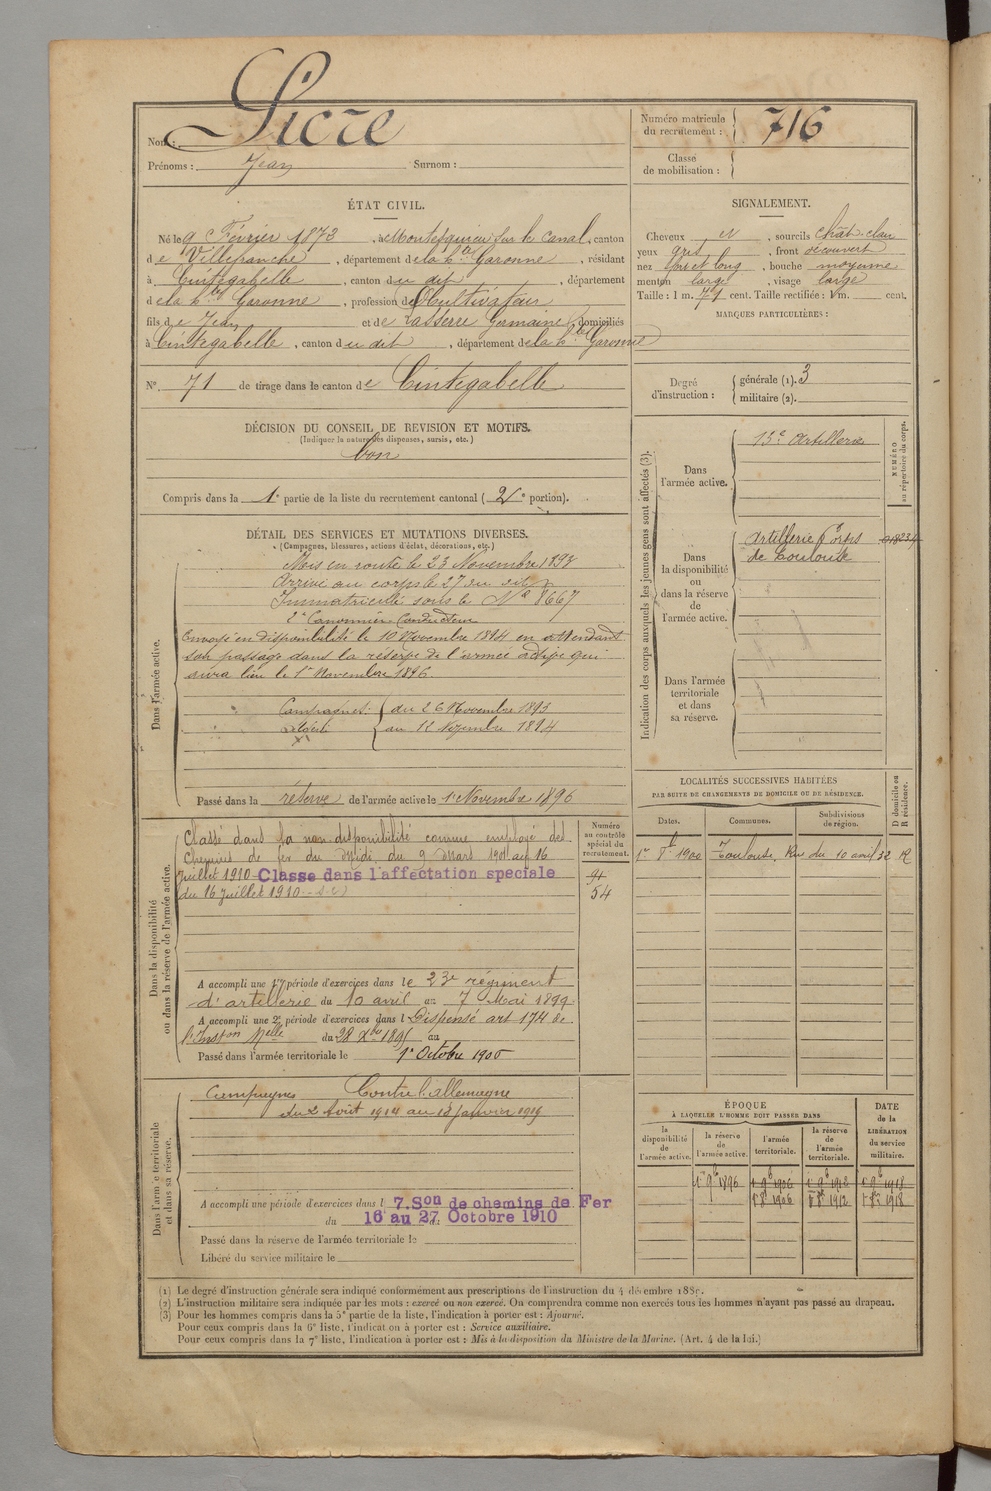 Nom : Sicre
Prénoms : Jean Surnom :
Numéro matricule du recrutement : 716
Classe de mobilisation :
ÉTAT CIVIL.
Né le 9 Février 1873, à Montesquieu sur le Canal, canton
de Villefranche, département de la Hte Garonne, résidant
à Cintegabelle, canton du dit, département
de la Hte Garonne, profession de Cultivateur
fils de Jean et de Lasserre Germaine, domiciliés
à Cintegabelle, canton du dit, département de la Hte Garonne
N° 71 de tirage dans le canton de Cintegabelle
SIGNALEMENT.
Cheveux N, sourcils chat. clair
yeux gris, front découvert
nez fort et long, bouche moyenne
menton large, visage large
Taille : 1 m. 71 cent. Taille rectifiée : 1 m. cent.
MARQUES PARTICULIÈRES :
Degré d'instruction :
générale (1). 3
militaire (2).
DÉCISION DU CONSEIL DE REVISION ET MOTIFS.
(Indiquer la nature des dispenses, sursis, etc.)
bon
Compris dans la 1e partie de la liste du recrutement cantonal (2e portion).
DÉTAIL DES SERVICES ET MUTATIONS DIVERSES.
(Campagnes, blessures, actions d'éclat, décorations, etc.)
Dans l'armée active.
Mis en route le 23 Novembre
Arrivé au corps le 27 du dit
Immatriculé sous le N° 8667
2e Canonnier Conducteur
Envoyé en disponibilité le 10 Novembre 1894 en attendant
son passage dans la réserve de l'armée active qui
aura lieu le 1er Novembre 1896.
Campagnes : du 26 Novembre 1893
au 12 Novembre 1894
Passé dans la réserve de l'armée active le 1er Novembre 1896
Indication des corps auxquels les jeunes gens sont affectés (3).
NUMÉRO au répertoire du corps.
Dans l'armée active.
13e Artillerie
Dans la disponibilité ou dans la réserve de l'armée active.
Artillerie Corps
de Toulouse
Dans l'armée territoriale et dans sa réserve.
Dans la disponibilité ou dans la réserve de l'armée active.
Numéro au contrôle spécial du recrutement.
Classé dans la non disponibilité comme employé des
Chemins de fer du Midi, du 9 Mars 1901 au 16
Juillet 1910 Classe dans l'affectation speciale
du 16 Juillet 1910
54
A accompli une 1re période d'exercices dans le 23e régiment
d'artillerie du 10 avril au 7 Mai 1899
A accompli une 2e période d'exercices dans l Dispensé art 174 de
l'Inston Melle du 28 Xbre 1895 au
Passé dans l'armée territoriale le 1er Octobre 1900
LOCALITÉS SUCCESSIVES HABITÉES
PAR SUITE DE CHANGEMENTS DE DOMICILE OU DE RÉSIDENCE.
Dates. Communes. Subdivisions de région. D domicile ou R résidence.
1900 Toulouse, Rue du 10 avril 32 R
Dans l'armée territoriale et dans sa réserve.
Campagnes Contre l'allemagne
du 2 Août 1914 au 13 janvier 1919
A accompli une période d'exercices dans l 7. Son de chemins de Fer
du 16 au 27 Octobre 1910
Passé dans la réserve de l'armée territoriale le
Libéré du service militaire le
ÉPOQUE
À LAQUELLE L'HOMME DOIT PASSER DANS
la disponibilité de l'armée active.
la réserve de l'armée active.
l'armée territoriale.
la réserve de l'armée territoriale.
DATE de la LIBÉRATION du service militaire.
1er 9b 1896 1er 9b 1906 1er 9b 1912 1er 9b 1918
1er 8b 1906 1er 8b 1912 1er 8b 1918
(1) Le degré d'instruction générale sera indiqué conformément aux prescriptions de l'instruction du 4 décembre 1889.
(2) L'instruction militaire sera indiquée par les mots : exercé ou non exercé. On comprendra comme non exercés tous les hommes n'ayant pas passé au drapeau.
(3) Pour les hommes compris dans la 5e partie de la liste, l'indication à porter est : Ajourné.
Pour ceux compris dans la 6e liste, l'indication à porter est : Service auxiliaire.
Pour ceux compris dans la 7e liste, l'indication à porter est : Mis à la disposition du Ministre de la Marine. (Art. 4 de la loi.)